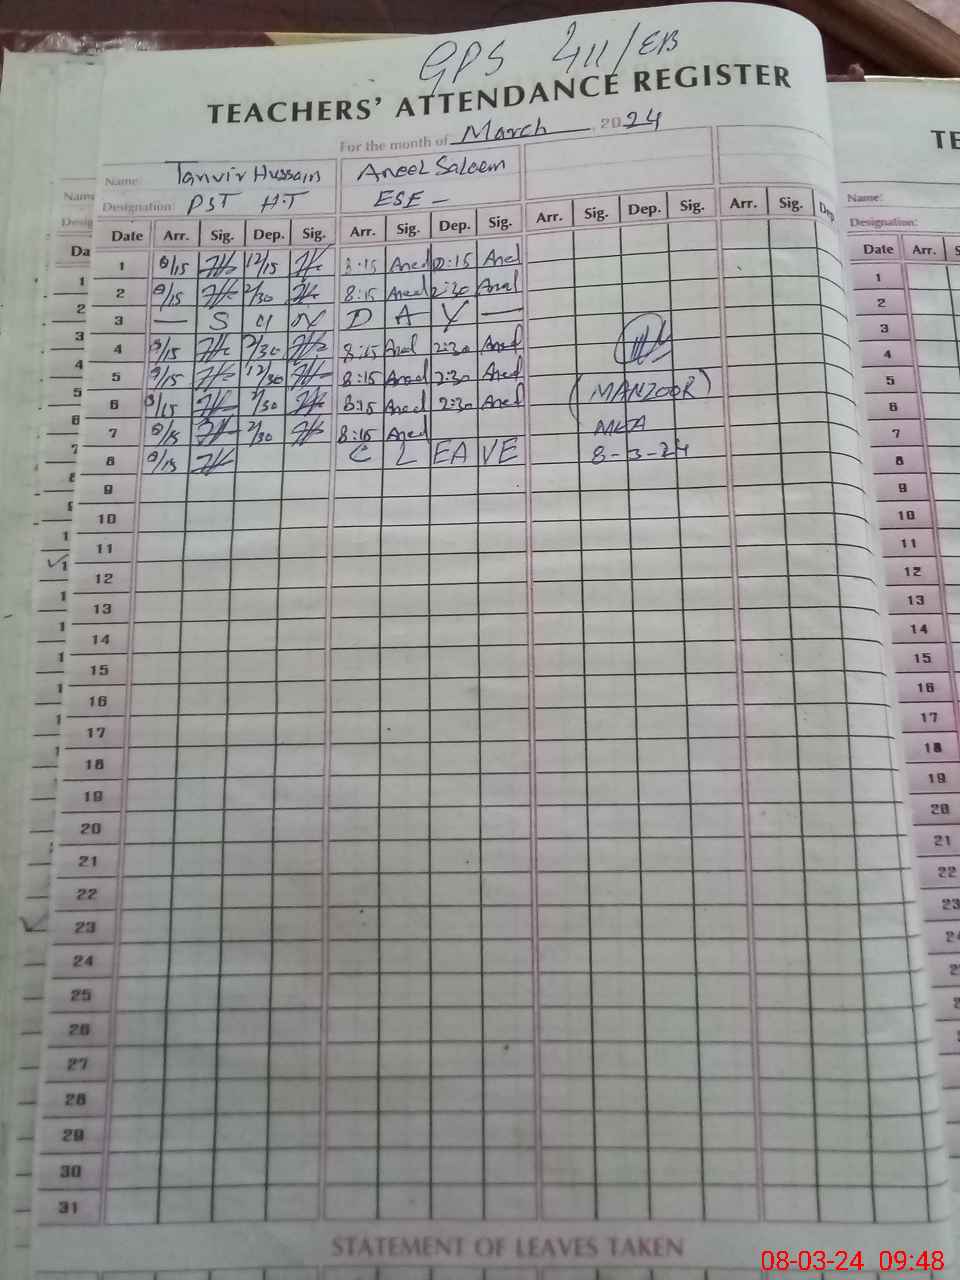 GPS 411/EB
TEACHERS' ATTENDANCE REGISTER
For the month of March, 2024
Name: Tanvir Hussain Aneel Saleem
Designation: PST H.T ESE -
Date Arr. Sig. Dep. Sig. Arr. Sig. Dep. Sig. Arr. Sig. Dep. Sig. Arr. Sig. Dep
1 8/15 12/15 8:15 Aneel 12:15 Aneel
2 8/15 2/30 8:15 Aneel 2:30 Aneel
3 — S U N D A Y —
4 8/15 2/30 8:15 Aneel 2:30 Aneel
5 8/15 12/30 8:15 Aneel 2:30 Aneel
(MANZOOR)
6 8/15 2/30 8:15 Aneel 2:30 Aneel
7 8/15 2/30 8:15 Aneel
MEA
8 8/15 C LEAVE 8-3-24
9
10
11
12
13
14
15
16
17
18
19
20
21
22
23
24
25
26
27
28
29
30
31
STATEMENT OF LEAVES TAKEN
TE
Name:
Designation:
Date Arr. S
1
2
3
4
5
6
7
8
9
10
11
12
13
14
15
16
17
18
19
20
21
22
23
08-03-24 09:48